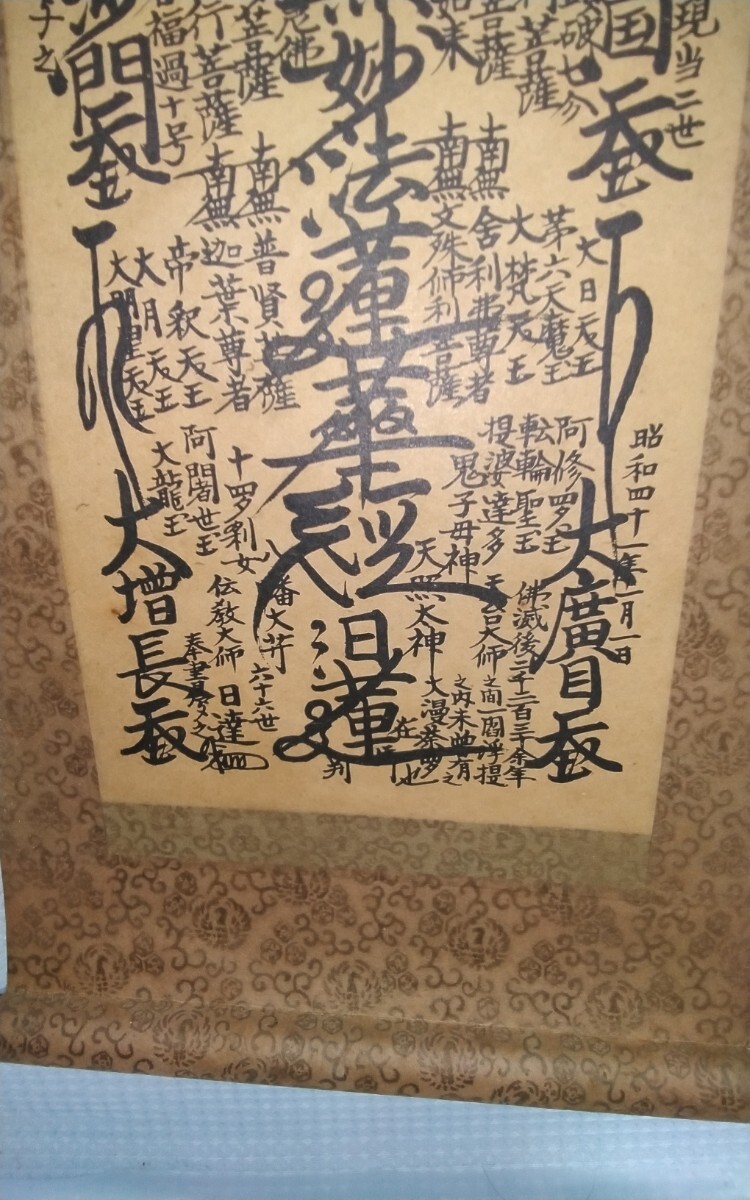 現当二世
国天王
破七分
菩薩
菩薩
如来
無妙法蓮華経 日蓮
在御判
佛
菩薩
行菩薩
福過十号
沙門天王
子之
南無舎利弗尊者
南無文殊師利菩薩
南無普賢菩薩
南無迦葉尊者
大日天王
第六天魔王
大梵天王
帝釈天王
大月天王
大明星天王
昭和四十一年二月一日
大廣目天王
阿修羅王
転輪聖王
提婆達多
鬼子母神
天照太神
十羅刹女
阿闍世王
大龍王
大増長天王
天台大師
八幡大菩薩
伝教大師
佛滅後二千二百三十余年
之間一閻浮提
之内未曽有之
大漫荼羅也
六十六世
日達
奉書写之